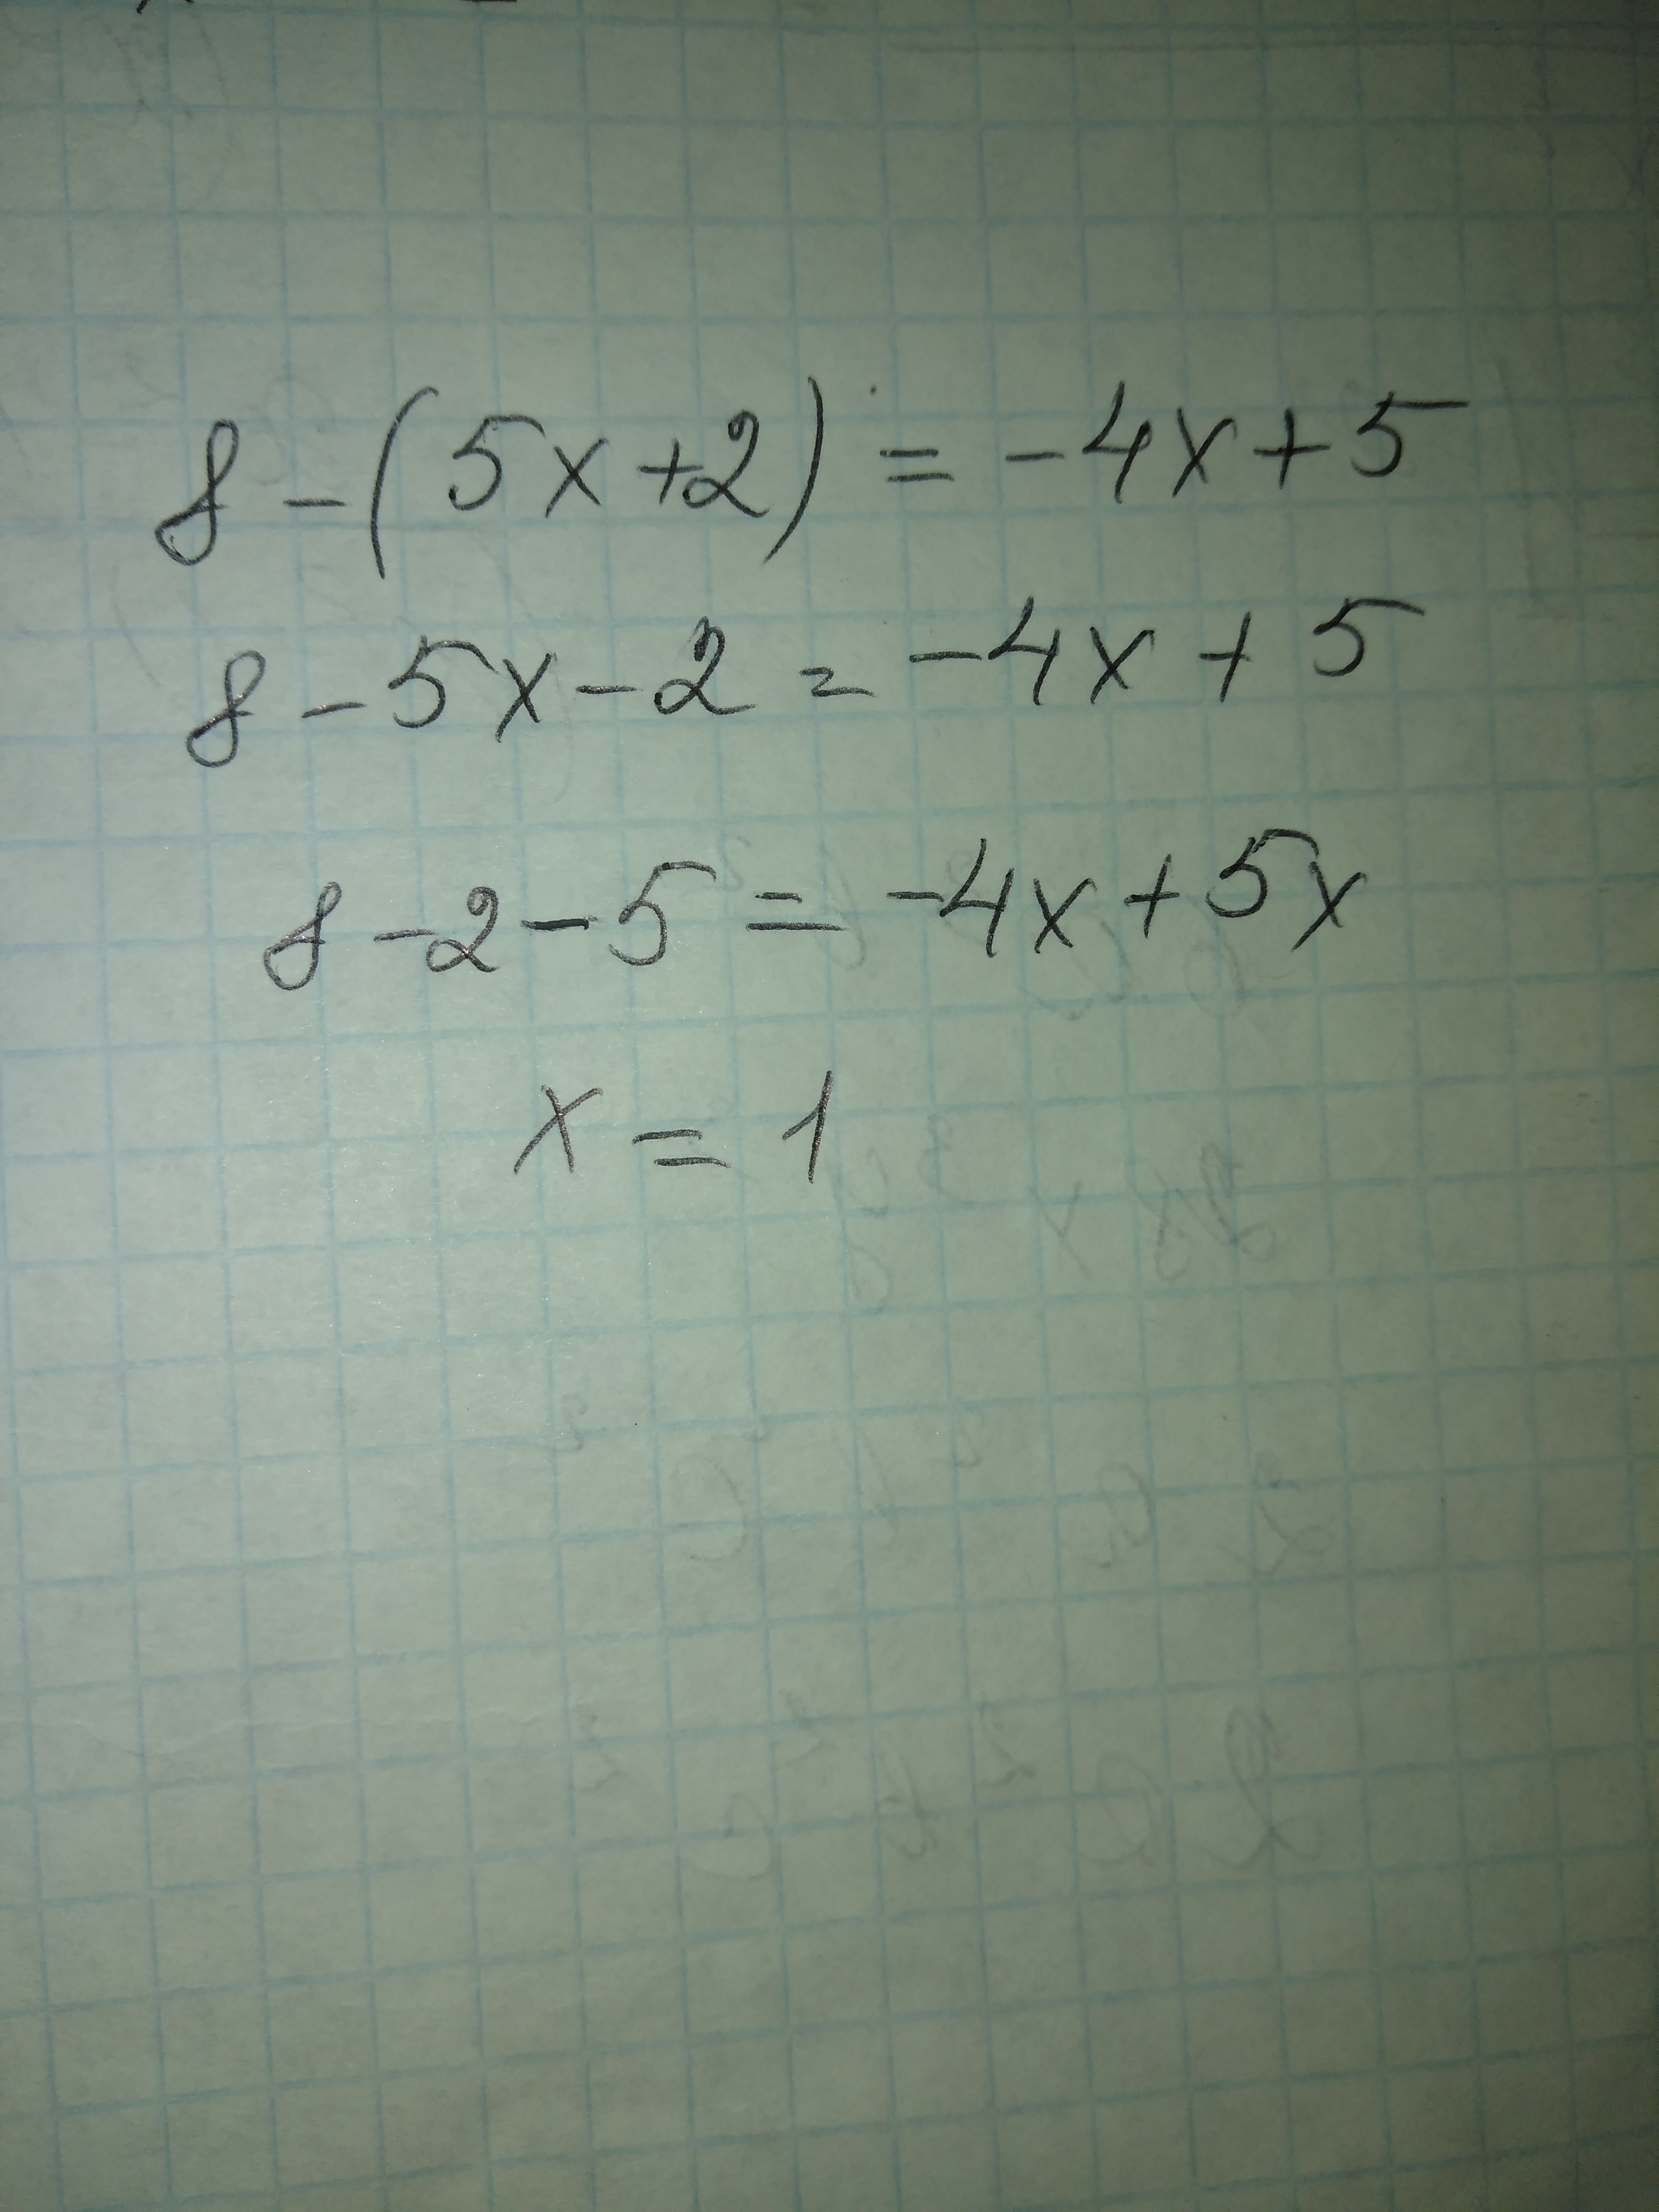 8 - (5x + 2) = -4x + 5
8 - 5x - 2 = -4x + 5
8 - 2 - 5 = -4x + 5x
x = 1